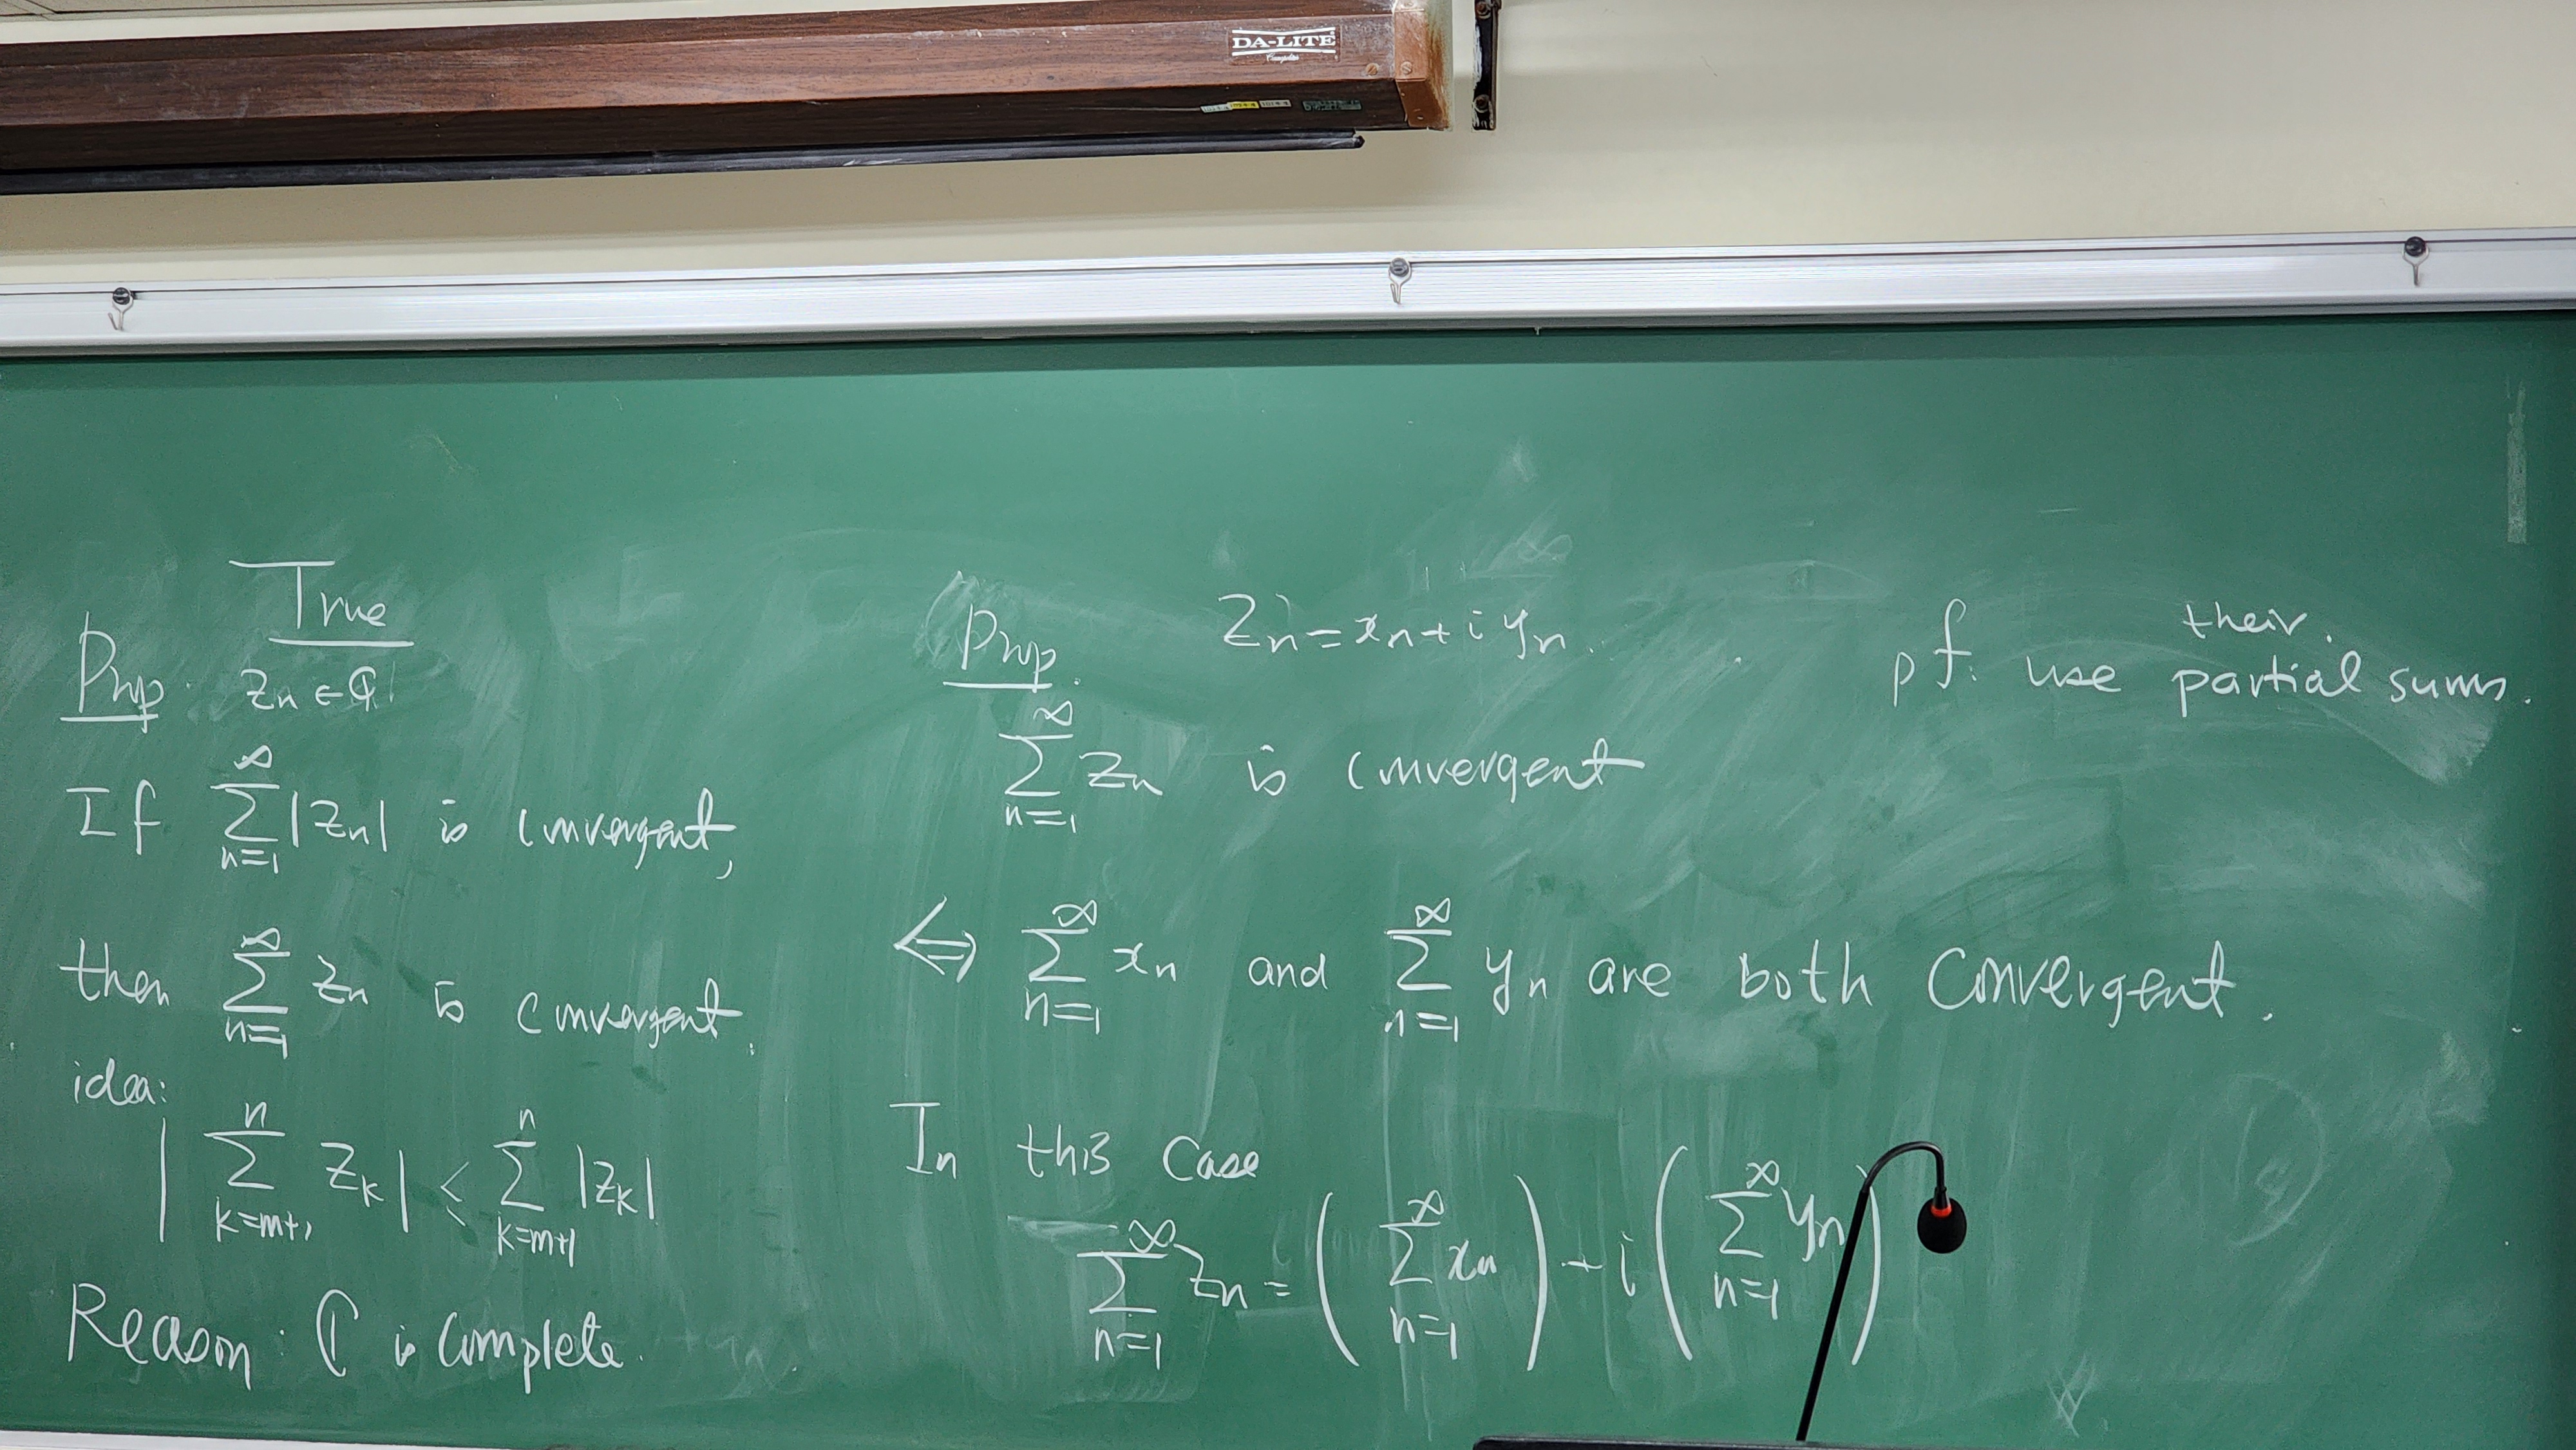 DA-LITE
True
Prop. Zn ∈ ℂ
If ∑_{n=1}^{∞} |Zn| is convergent,
then ∑_{n=1}^{∞} Zn is convergent.
idea:
| ∑_{k=m+1}^{n} Zk | ≤ ∑_{k=m+1}^{n} |Zk|
Reason: ℂ is complete.
Prop. Zn = xn + i yn.
∑_{n=1}^{∞} Zn is convergent
⟺ ∑_{n=1}^{∞} xn and ∑_{n=1}^{∞} yn are both convergent.
In this case
∑_{n=1}^{∞} Zn = ( ∑_{n=1}^{∞} xn ) + i ( ∑_{n=1}^{∞} yn )
their.
pf: use partial sums.